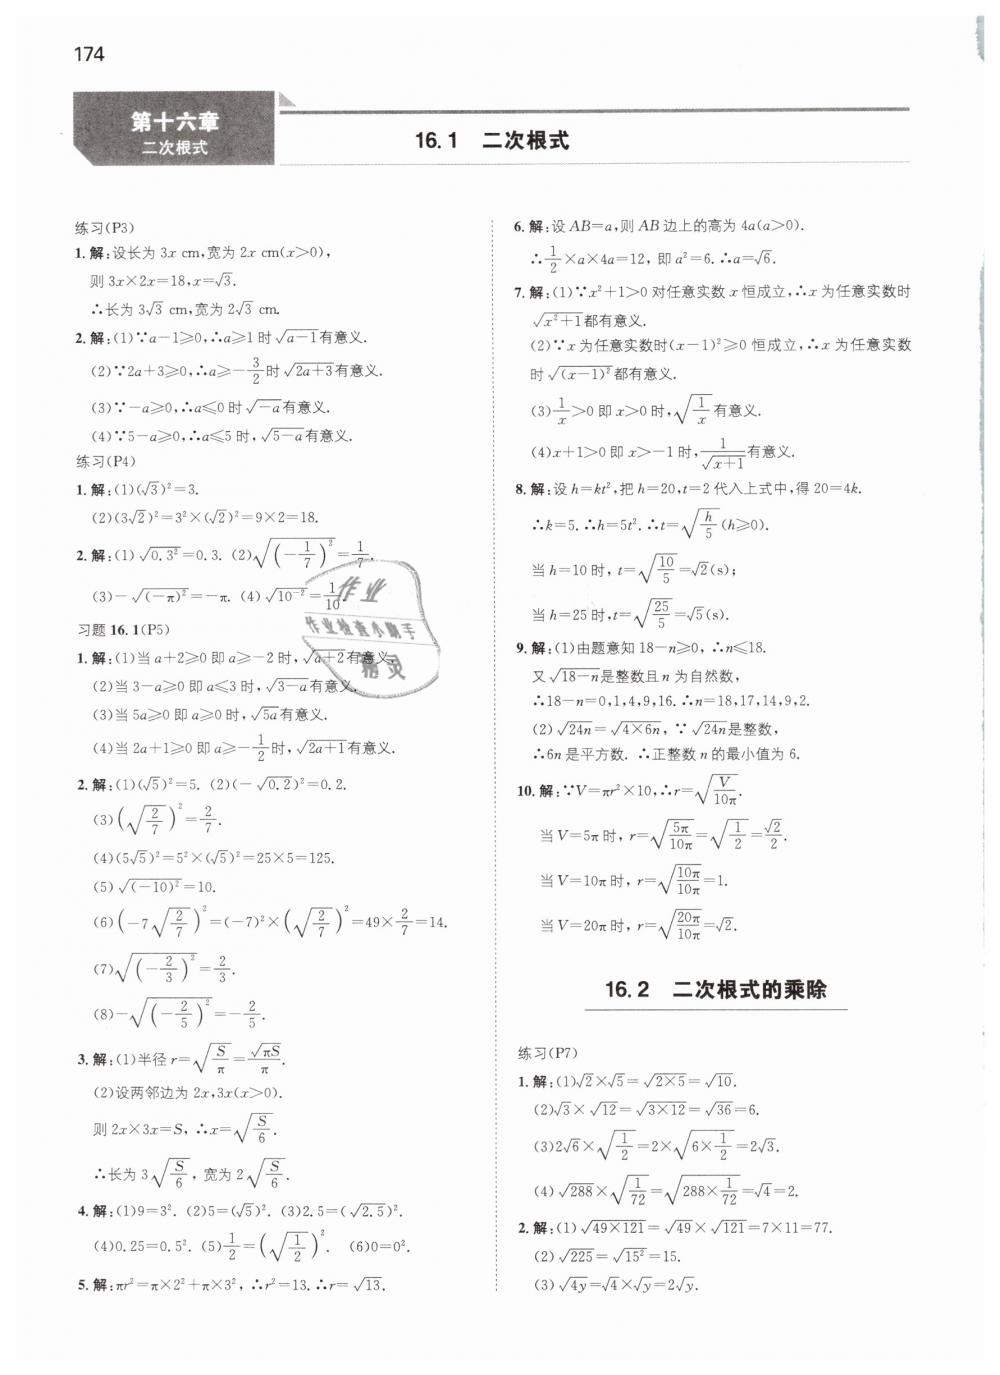 174
第十六章
二次根式
16.1 二次根式
练习(P3)
1.解:设长为 3x cm,宽为 2x cm(x>0),
则 3x×2x=18,x=√3.
∴长为 3√3 cm,宽为 2√3 cm.
2.解:(1)∵a-1≥0,∴a≥1 时√(a-1)有意义.
(2)∵2a+3≥0,∴a≥-3/2时√(2a+3)有意义.
(3)∵-a≥0,∴a≤0 时√(-a)有意义.
(4)∵5-a≥0,∴a≤5 时,√(5-a)有意义.
练习(P4)
1.解:(1)(√3)²=3.
(2)(3√2)²=3²×(√2)²=9×2=18.
2.解:(1)√(0.3²)=0.3. (2)√((-1/7)²)=1/7.
(3)-√((-π)²)=-π. (4)√(10⁻²)=1/10.
习题 16.1(P5)
1.解:(1)当 a+2≥0 即 a≥-2 时,√(a+2)有意义.
(2)当 3-a≥0 即 a≤3 时,√(3-a)有意义.
(3)当 5a≥0 即 a≥0 时,√(5a)有意义.
(4)当 2a+1≥0 即 a≥-1/2时,√(2a+1)有意义.
2.解:(1)(√5)²=5. (2)(-√0.2)²=0.2.
(3)(√(2/7))²=2/7.
(4)(5√5)²=5²×(√5)²=25×5=125.
(5)√((-10)²)=10.
(6)(-7√(2/7))²=(-7)²×(√(2/7))²=49×2/7=14.
(7)√((-2/3)²)=2/3.
(8)-√((-2/5)²)=-2/5.
3.解:(1)半径 r=√(S/π)=√(πS)/π.
(2)设两邻边为 2x,3x(x>0).
则 2x×3x=S, ∴x=√(S/6).
∴长为 3√(S/6), 宽为 2√(S/6).
4.解:(1)9=3². (2)5=(√5)². (3)2.5=(√2.5)².
(4)0.25=0.5². (5)1/2=(√(1/2))². (6)0=0².
5.解:πr²=π×2²+π×3², ∴r²=13. ∴r=√13.
6.解:设 AB=a,则 AB 边上的高为 4a(a>0).
∴1/2×a×4a=12, 即 a²=6. ∴a=√6.
7.解:(1)∵x²+1>0 对任意实数 x 恒成立,∴x 为任意实数时
√(x²+1)都有意义.
(2)∵x 为任意实数时(x-1)²≥0 恒成立,∴x 为任意实数
时√((x-1)²)都有意义.
(3)1/x>0 即 x>0 时,√(1/x)有意义.
(4)x+1>0 即 x>-1 时,1/√(x+1)有意义.
8.解:设 h=kt²,把 h=20,t=2 代入上式中,得 20=4k.
∴k=5. ∴h=5t². ∴t=√(h/5)(h≥0).
当 h=10 时,t=√(10/5)=√2(s);
当 h=25 时,t=√(25/5)=√5(s).
9.解:(1)由题意知 18-n≥0, ∴n≤18.
又√(18-n)是整数且 n 为自然数,
∴18-n=0,1,4,9,16. ∴n=18,17,14,9,2.
(2)√(24n)=√(4×6n), ∵√(24n)是整数,
∴6n 是平方数. ∴正整数 n 的最小值为 6.
10.解:∵V=πr²×10,∴r=√(V/10π).
当 V=5π 时, r=√(5π/10π)=√(1/2)=√2/2.
当 V=10π 时, r=√(10π/10π)=1.
当 V=20π 时, r=√(20π/10π)=√2.
16.2 二次根式的乘除
练习(P7)
1.解:(1)√2×√5=√(2×5)=√10.
(2)√3×√12=√(3×12)=√36=6.
(3)2√6×√(1/2)=2×√(6×1/2)=2√3.
(4)√288×√(1/72)=√(288×1/72)=√4=2.
2.解:(1)√(49×121)=√49×√121=7×11=77.
(2)√225=√(15²)=15.
(3)√(4y)=√4×√y=2√y.
作业
作业检查小助手
精灵